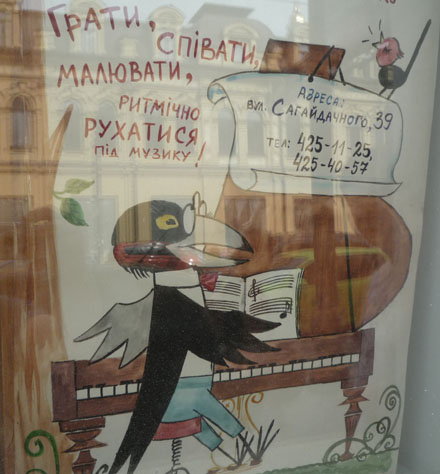 ГРАТИ,
СПІВАТИ,
МАЛЮВАТИ,
РИТМІЧНО
РУХАТИСЯ
ПІД МУЗИКУ!
АДРЕСА:
ВУЛ. САГАЙДАЧНОГО, 39
ТЕЛ: 425-11-25,
425-40-57